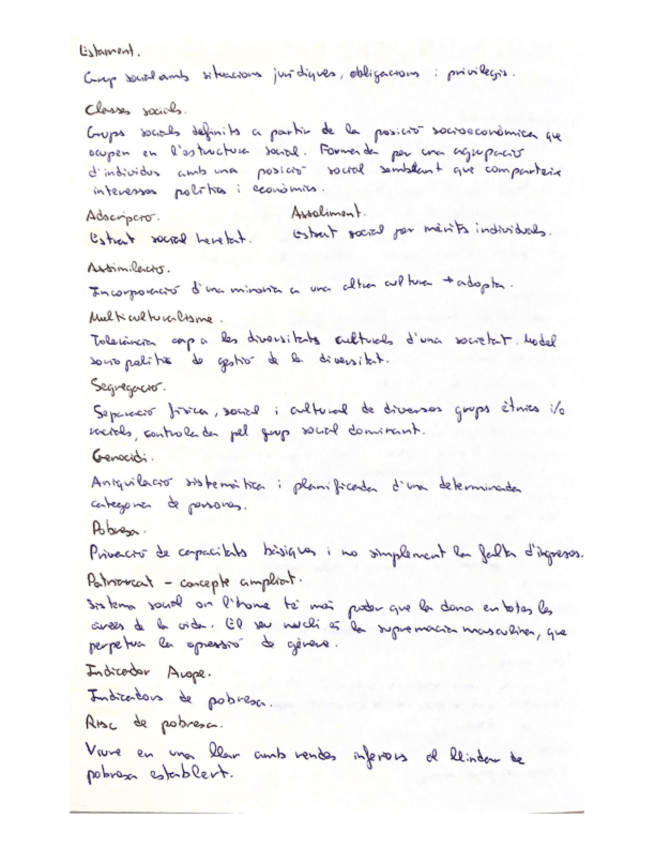 Estament.
Grup social amb situacions jurídiques, obligacions i privilegis.
Classes socials.
Grups socials definits a partir de la posició socioeconòmica que
ocupen en l'estructura social. Formada per una agrupació
d'individus amb una posició social semblant que comparteix
interessos polítics i econòmics.
Adscripció. Assoliment.
Estrat social heretat. Estrat social per mèrits individuals.
Assimilació.
Incorporació d'una minoria a una altra cultura → adopta.
Multiculturalisme.
Tolerància cap a les diversitats culturals d'una societat. Model
sociopolític de gestió de la diversitat.
Segregació.
Separació física, social i cultural de diversos grups ètnics i/o
socials, controlada pel grup social dominant.
Genocidi.
Aniquilació sistemàtica i planificada d'una determinada
categoria de persones.
Pobresa.
Privació de capacitats bàsiques i no simplement la falta d'ingressos.
Patriarcat - concepte ampliat.
Sistema social on l'home té més poder que la dona en totes les
àrees de la vida. El seu nucli és la supremacia masculina, que
perpetua la opressió de gènere.
Indicador Arope.
Indicadors de pobresa.
Risc de pobresa.
Viure en una llar amb rendes inferiors al llindar de
pobresa establert.